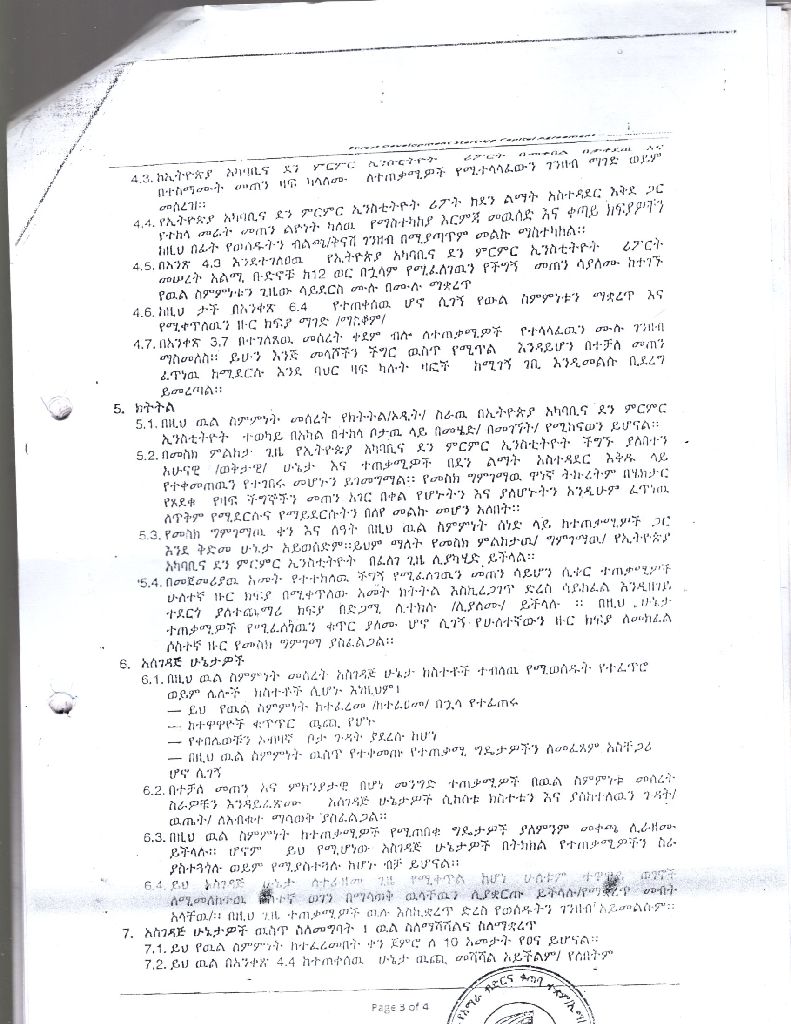 Forest Development Startup Capital Agreement
4.3. ከኢትዮጵያ አካባቢና ደን ምርምር ኢንስቲትዮት ሪፖርት
በተስማሙት መጠን ዛፍ ካላለሙ ለተጠቃሚዎች የሚተላላፈውን ገንዘብ ማገድ ወይም
መሰረዝ፡፡
4.4. የኢትዮጵያ አካባቢና ደን ምርምር ኢንስቲትዮት ሪፖት ከደን ልማት አስተዳደር እቅደ ጋር
የተከላ መሬት መጠን ልዮነት ካለዉ የማስተካከያ እርምጃ መዉሰድ እና ቀጣይ ክፍያዎችን
ከዚህ በፊት የወሰዱትን ብልጫ/ቅናሽ ገንዘብ በሚያጣጥም መልኩ ማስተካከል፡፡
4.5. በአንጽ 4.3 እንደተገለፀዉ የኢትዮጵያ አካባቢና ደን ምርምር ኢንስቲትዮት ሪፖርት
መሠረት አልሚ ቡድኖቹ ከ12 ወር በኋላም የሚፈለገዉን የችግኝ መጠን ሳያለሙ ከተገኙ
የዉል ስምምነቱን ጊዜው ሳይደርስ ሙሉ በሙሉ ማቋረጥ
4.6. ከዚህ ታች በአንቀጽ 6.4 የተጠቀሰዉ ሆኖ ሲገኝ የውል ስምምነቱን ማቋረጥ እና
የሚቀጥለዉን ዙር ክፍያ ማገድ /ማስቆም/
4.7. በአንቀጽ 3.7 በተገለጸዉ መሰረት ቀደም ብሎ ለተጠቃሚዎች የተላላፈዉን ሙሉ ገንዘብ
ማስመለስ፡፡ ይሁን እንጅ መላሾችን ችግር ዉስጥ የሚጥል እንዳይሆን በተቻለ መጠን
ፈጥነዉ ከሚደርሱ እንደ ባህር ዛፍ ካሉት ዛፎች ከሚገኝ ገቢ እንዲመልሱ ቢደረግ
ይመረጣል፡፡
5. ክትትል
5.1. በዚህ ዉል ስምምነት መሰረት የክትትል/ኦዲት/ ስራዉ በኢትዮጵያ አካባቢና ደን ምርምር
ኢንስቲትዮት ተወካይ በአካል በተከላ ቦታዉ ላይ በመሄድ/ በመገኘት/ የሚከናወን ይሆናል፡፡
5.2. በመስክ ምልከታ ጊዜ የኢትዮጵያ አካባቢና ደን ምርምር ኢንስቲትዮት ችግኙ ያለበትን
አሁናዊ /ወቅታዊ/ ሁኔታ እና ተጠቃሚዎች በደን ልማት አስተዳደር እቅዱ ላይ
የተቀመጠዉን የተገበሩ መሆኑን ይገመግማል፡፡ የመስክ ግምገማዉ ዋነኛ ትኩረትም በሄክታር
የጸደቁ የዛፍ ችግኞችን መጠን አገር በቀል የሆኑትን እና ያልሆኑትን እንዲሁም ፈጥነዉ
ለጥቅም የሚደርሱና የማይደርሱትን በለየ መልኩ መሆን አለበት፡፡
5.3. የመስክ ግምገማዉ ቀን እና ሰዓት በዚህ ዉል ስምምነት ሰነድ ላይ ከተጠቃሚዎች ጋር
እንደ ቅድመ ሁኔታ አይወሰድም፡፡ይህም ማለት የመስክ ምልከታዉ/ ግምገማዉ/ የኢትዮጵያ
አካባቢና ደን ምርምር ኢንስቲትዮት በፈለገ ጊዜ ሊያካሂድ ይችላል፡፡
5.4. በመጀመሪያዉ አመት የተተከለዉ ችግኝ የሚፈለገዉን መጠን ሳይሆን ሲቀር ተጠቃሚዎች
ሁለተኛ ዙር ክፍያ በሚቀጥለው አመት ክትትል እስኪረጋገጥ ድረስ ሳይከፈል እንዲዘገይ
ተደርጎ ያለተጨማሪ ክፍያ በድጋሚ ሊተክሉ /ሊያለሙ/ ይችላሉ ፡፡ በዚህ ሁኔታ
ተጠቃሚዎች የሚፈለገዉን ቁጥር ያለሙ ሆኖ ሲገኝ የሁለተኛውን ዙር ክፍያ ለመክፈል
ሶስተኛ ዙር የመስክ ግምገማ ያስፈልጋል፡፡
6. አስገዳጅ ሁኔታዎች
6.1. በዚህ ዉል ስምምነት መሰረት አስገዳጅ ሁኔታ ክስተቶች ተብለዉ የሚወሰዱት የተፈጥሮ
ወይም ሌሎች ክስተቶች ሲሆኑ እነዚህም፤
— ይህ የዉል ስምምነት ከተፈረመ /ከተፈፀመ/ በኋላ የተፈጠሩ
— ከተዋዋዮች ቁጥጥር ዉጪ የሆኑ
— የቀበሌዎችን አብዛኛ ቦታ ጉዳት ያደረሱ ከሆነ
— በዚህ ዉል ስምምነት ዉስጥ የተቀመጡ የተጠቃሚ ግዴታዎችን ለመፈጸም አስቸጋሪ
ሆኖ ሲገኝ
6.2. በተቻለ መጠን እና ምክንያታዊ በሆነ መንግድ ተጠቃሚዎች በዉል ስምምነቱ መሰረት
ስራዎቹን እንዳይፈጽሙ አስገዳጅ ሁኔታዎች ሲከሰቱ ክስተቱን እና ያስከተለዉን ጉዳት/
ዉጤት/ ለአብቁተ ማሳወቅ ያስፈልጋል፡፡
6.3. በዚህ ዉል ስምምነት ከተጠቃሚዎች የሚጠበቁ ግዴታዎች ያለምንም መቀጫ ሊራዘሙ
ይችላሉ፡፡ ሆኖም ይህ የሚሆነው አስገዳጅ ሁኔታዎች በትክክል የተጠቃሚዎችን ስራ
ያስተጓጎሉ ወይም የሚያስተጓጉሉ ከሆኑ ብቻ ይሆናል፡፡
6.4. ይህ አስገዳጅ ሁኔታ ለተራዘመ ጊዜ የሚቀጥል ከሆነ ሁሉም ተዋዋይ ወገኖች
ለሚመለከተዉ ወገን በማሳወቅ ዉላቸዉን ሊያቋርጡ ይችላሉ/ መብት
አላቸዉ/፡፡ በዚህ ጊዜ ተጠቃሚዎች ዉሉ እስኪቋረጥ ድረስ የወሰዱትን ገንዘብ አይመልሱም፡፡
7. አስገዳጅ ሁኔታዎች ዉስጥ ስለመግባት ፤ ዉል ስለማሻሻልና ስለማቋረጥ
7.1. ይህ የዉል ስምምነት ከተፈረመበት ቀን ጀምሮ ለ 10 አመታት የፀና ይሆናል፡፡
7.2. ይህ ዉል በአንቀጽ 4.4 ከተጠቀሰዉ ሁኔታ ዉጪ መሻሻል አይችልም/ የለበትም
Page 3 of 4
የአማራ ብድርና ቁጠባ ተቋም